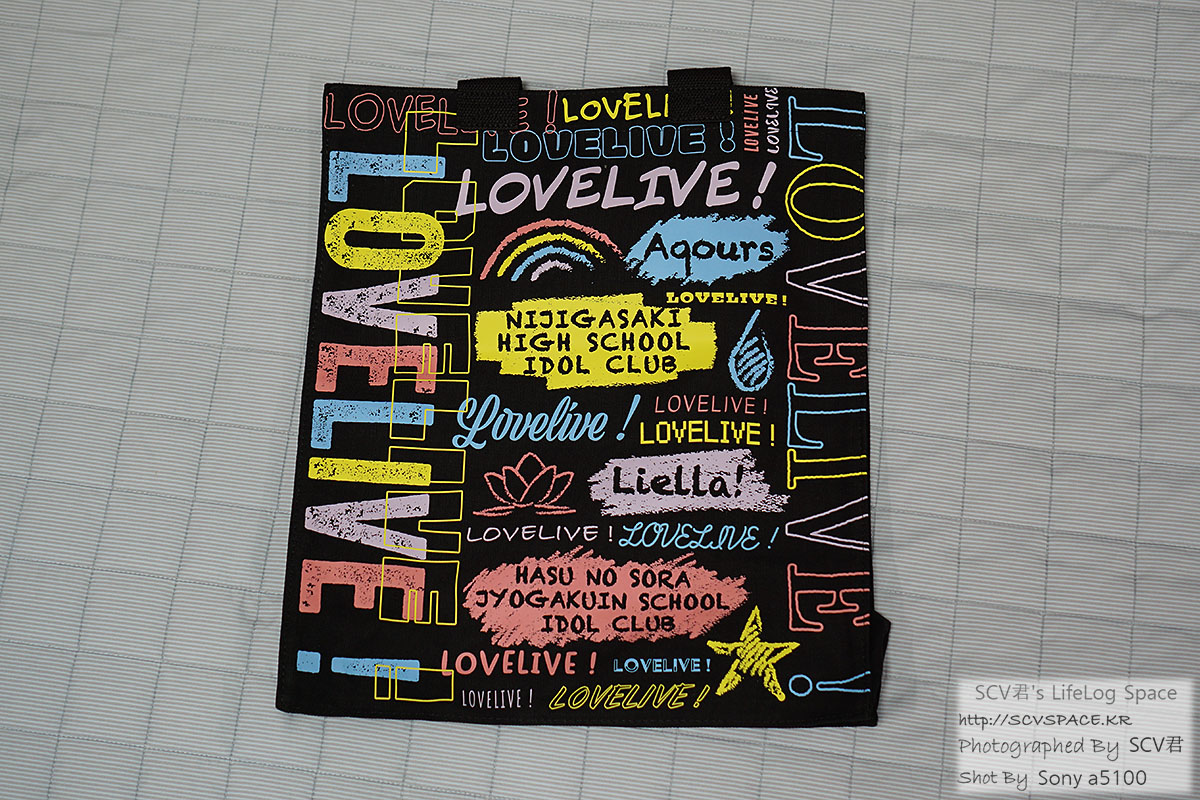 LOVELIVE !
LOVELI
LOVELIVE !
LOVELIVE
LOVELIVE
LOVELIVE !
LOVELIVE !
LOVELIVE !
LOVELIVE !
Aqours
LOVELIVE !
NIJIGASAKI
HIGH SCHOOL
IDOL CLUB
Lovelive !
LOVELIVE !
LOVELIVE !
Liella!
LOVELIVE !
LOVELIVE !
HASU NO SORA
JYOGAKUIN SCHOOL
IDOL CLUB
LOVELIVE !
LOVELIVE !
LOVELIVE !
LOVELIVE !
SCV君's LifeLog Space
http://SCVSPACE.KR
Photographed By SCV君
Shot By Sony a5100